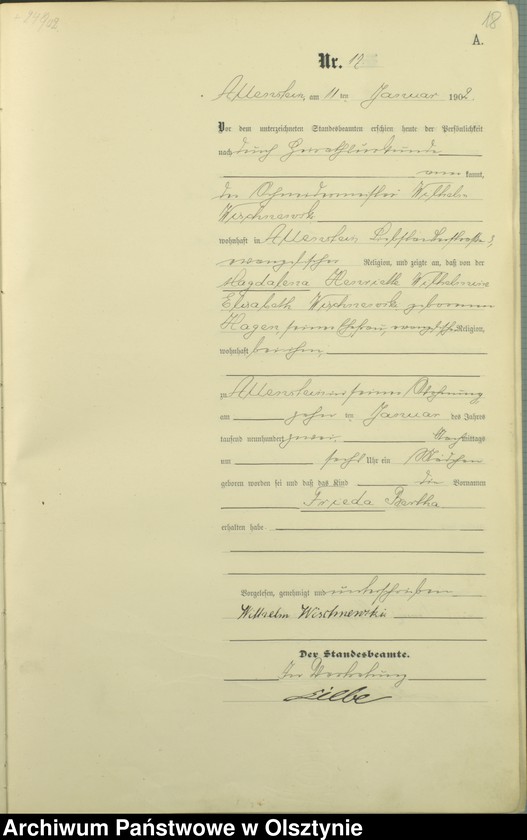 18
A.
Nr. 12
Allenstein, am 11ten Januar 1902.
Vor dem unterzeichneten Standesbeamten erschien heute der Persönlichkeit
nach durch Heiratsurkunde
kannt,
der Schneidermeister Wilhelm
Wischnewski
wohnhaft in Allenstein Liebstädterstraße
evangelischer Religion, und zeigte an, daß von der
Magdalena Henriette Wilhelmine
Elisabeth Wischnewski geborenen
Hagen, seiner Ehefrau, evangelischer Religion,
wohnhaft bei ihm,
zu Allenstein in seiner Wohnung
am zehnten Januar des Jahres
tausend neunhundert zwei Nachmittags
um sechs Uhr ein Mädchen
geboren worden sei und daß das Kind die Vornamen
Frieda Bertha
erhalten habe
Vorgelesen, genehmigt und unterschrieben
Wilhelm Wischnewski
Der Standesbeamte.
In Vertretung
Archiwum Państwowe w Olsztynie